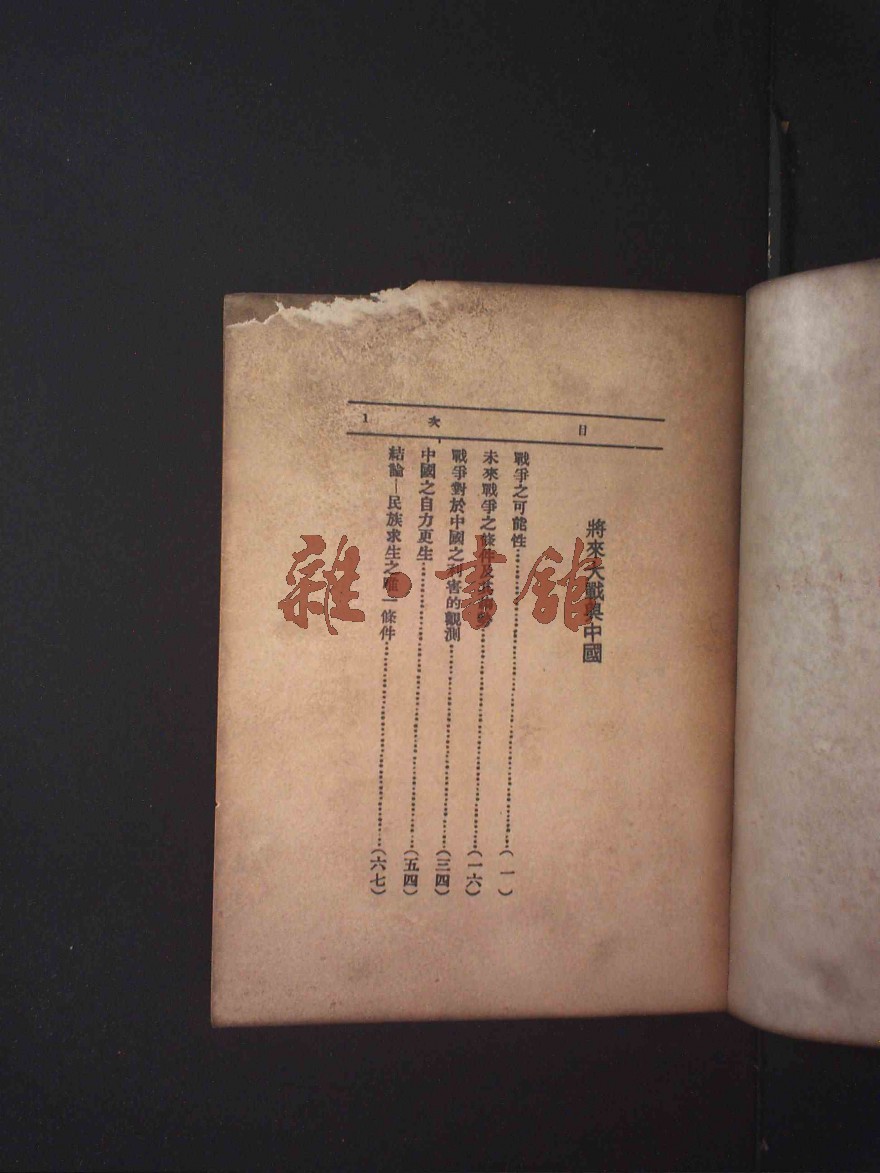 目次 1
將來大戰與中國
戰爭之可能性……(一)
未來戰爭之條件及其形勢……(一六)
戰爭對於中國之利害的觀測……(三四)
中國之自力更生……(五四)
結論—民族求生之唯一條件……(六七)
雜·書館